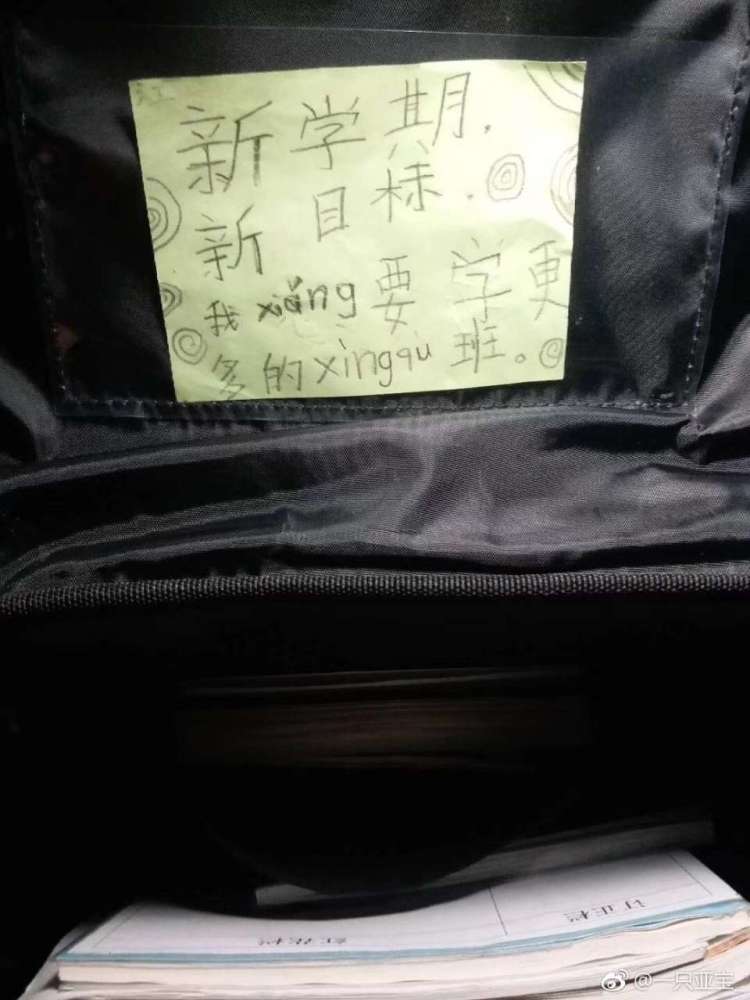 新学期,
新目标.
我xiǎng要学更
多的xìngqu班。
订正栏
@一只亚宝